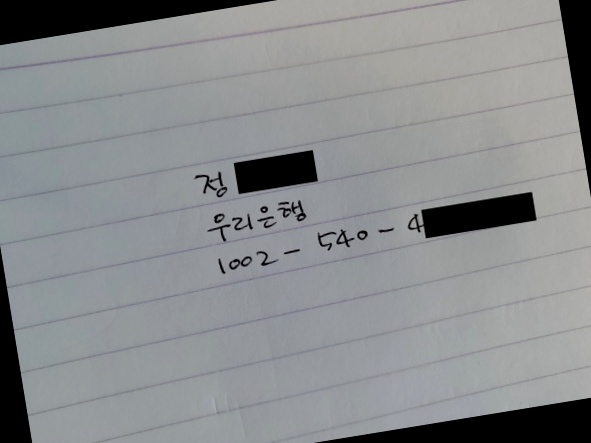 정
우리은행
1002 - 540 - 4